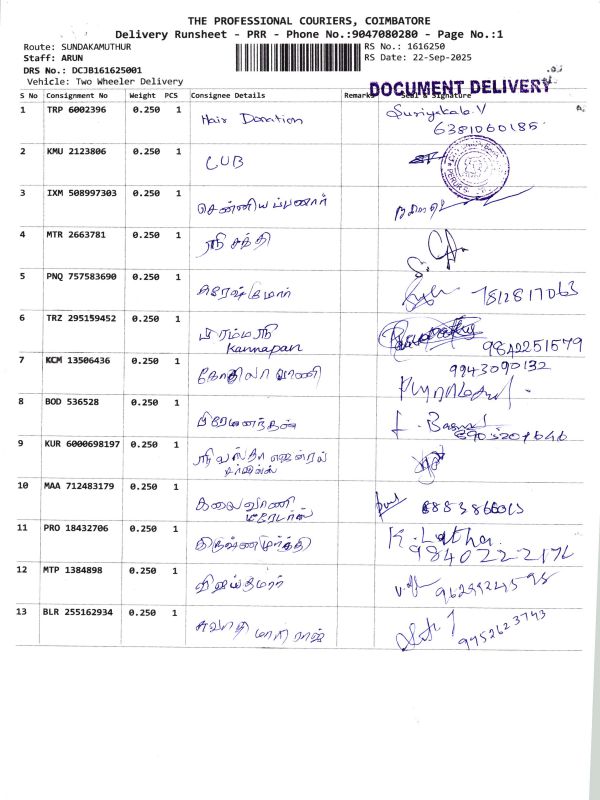 THE PROFESSIONAL COURIERS, COIMBATORE
Delivery Runsheet - PRR - Phone No.:9047080280 - Page No.:1
Route: SUNDAKAMUTHUR
RS No.: 1616250
Staff: ARUN
RS Date: 22-Sep-2025
DRS No.: DCJB161625001
Vehicle: Two Wheeler Delivery
DOCUMENT DELIVERY
S No Consignment No Weight PCS Consignee Details Remarks Seal & Signature
1 TRP 6002396 0.250 1 Hair Donation Suriyakala.V
6381060185
2 KMU 2123806 0.250 1 CUB
3 IXM 508997303 0.250 1 சென்னியப்பனார்
4 MTR 2663781 0.250 1 ஸ்ரீ சக்தி
5 PNQ 757583690 0.250 1 சுரேஷ்குமார் 7812817063
6 TRZ 295159452 0.250 1 பிரம்மஸ்ரீ
Kannapan 9842251579
7 KCM 13506436 0.250 1 கோகிலா வாணி 9943090132
8 BOD 536528 0.250 1 பிரேமானந்தன்
9 KUR 6000698197 0.250 1 ஸ்ரீ
10 MAA 712483179 0.250 1 கலைவாணி
டிரேடர்ஸ்
11 PRO 18432706 0.250 1 கிருஷ்ணமூர்த்தி K. Latha.
12 MTP 1384898 0.250 1 விஜய்குமார்
13 BLR 255162934 0.250 1 சுவாதி மாரி ராஜ் 9952623743